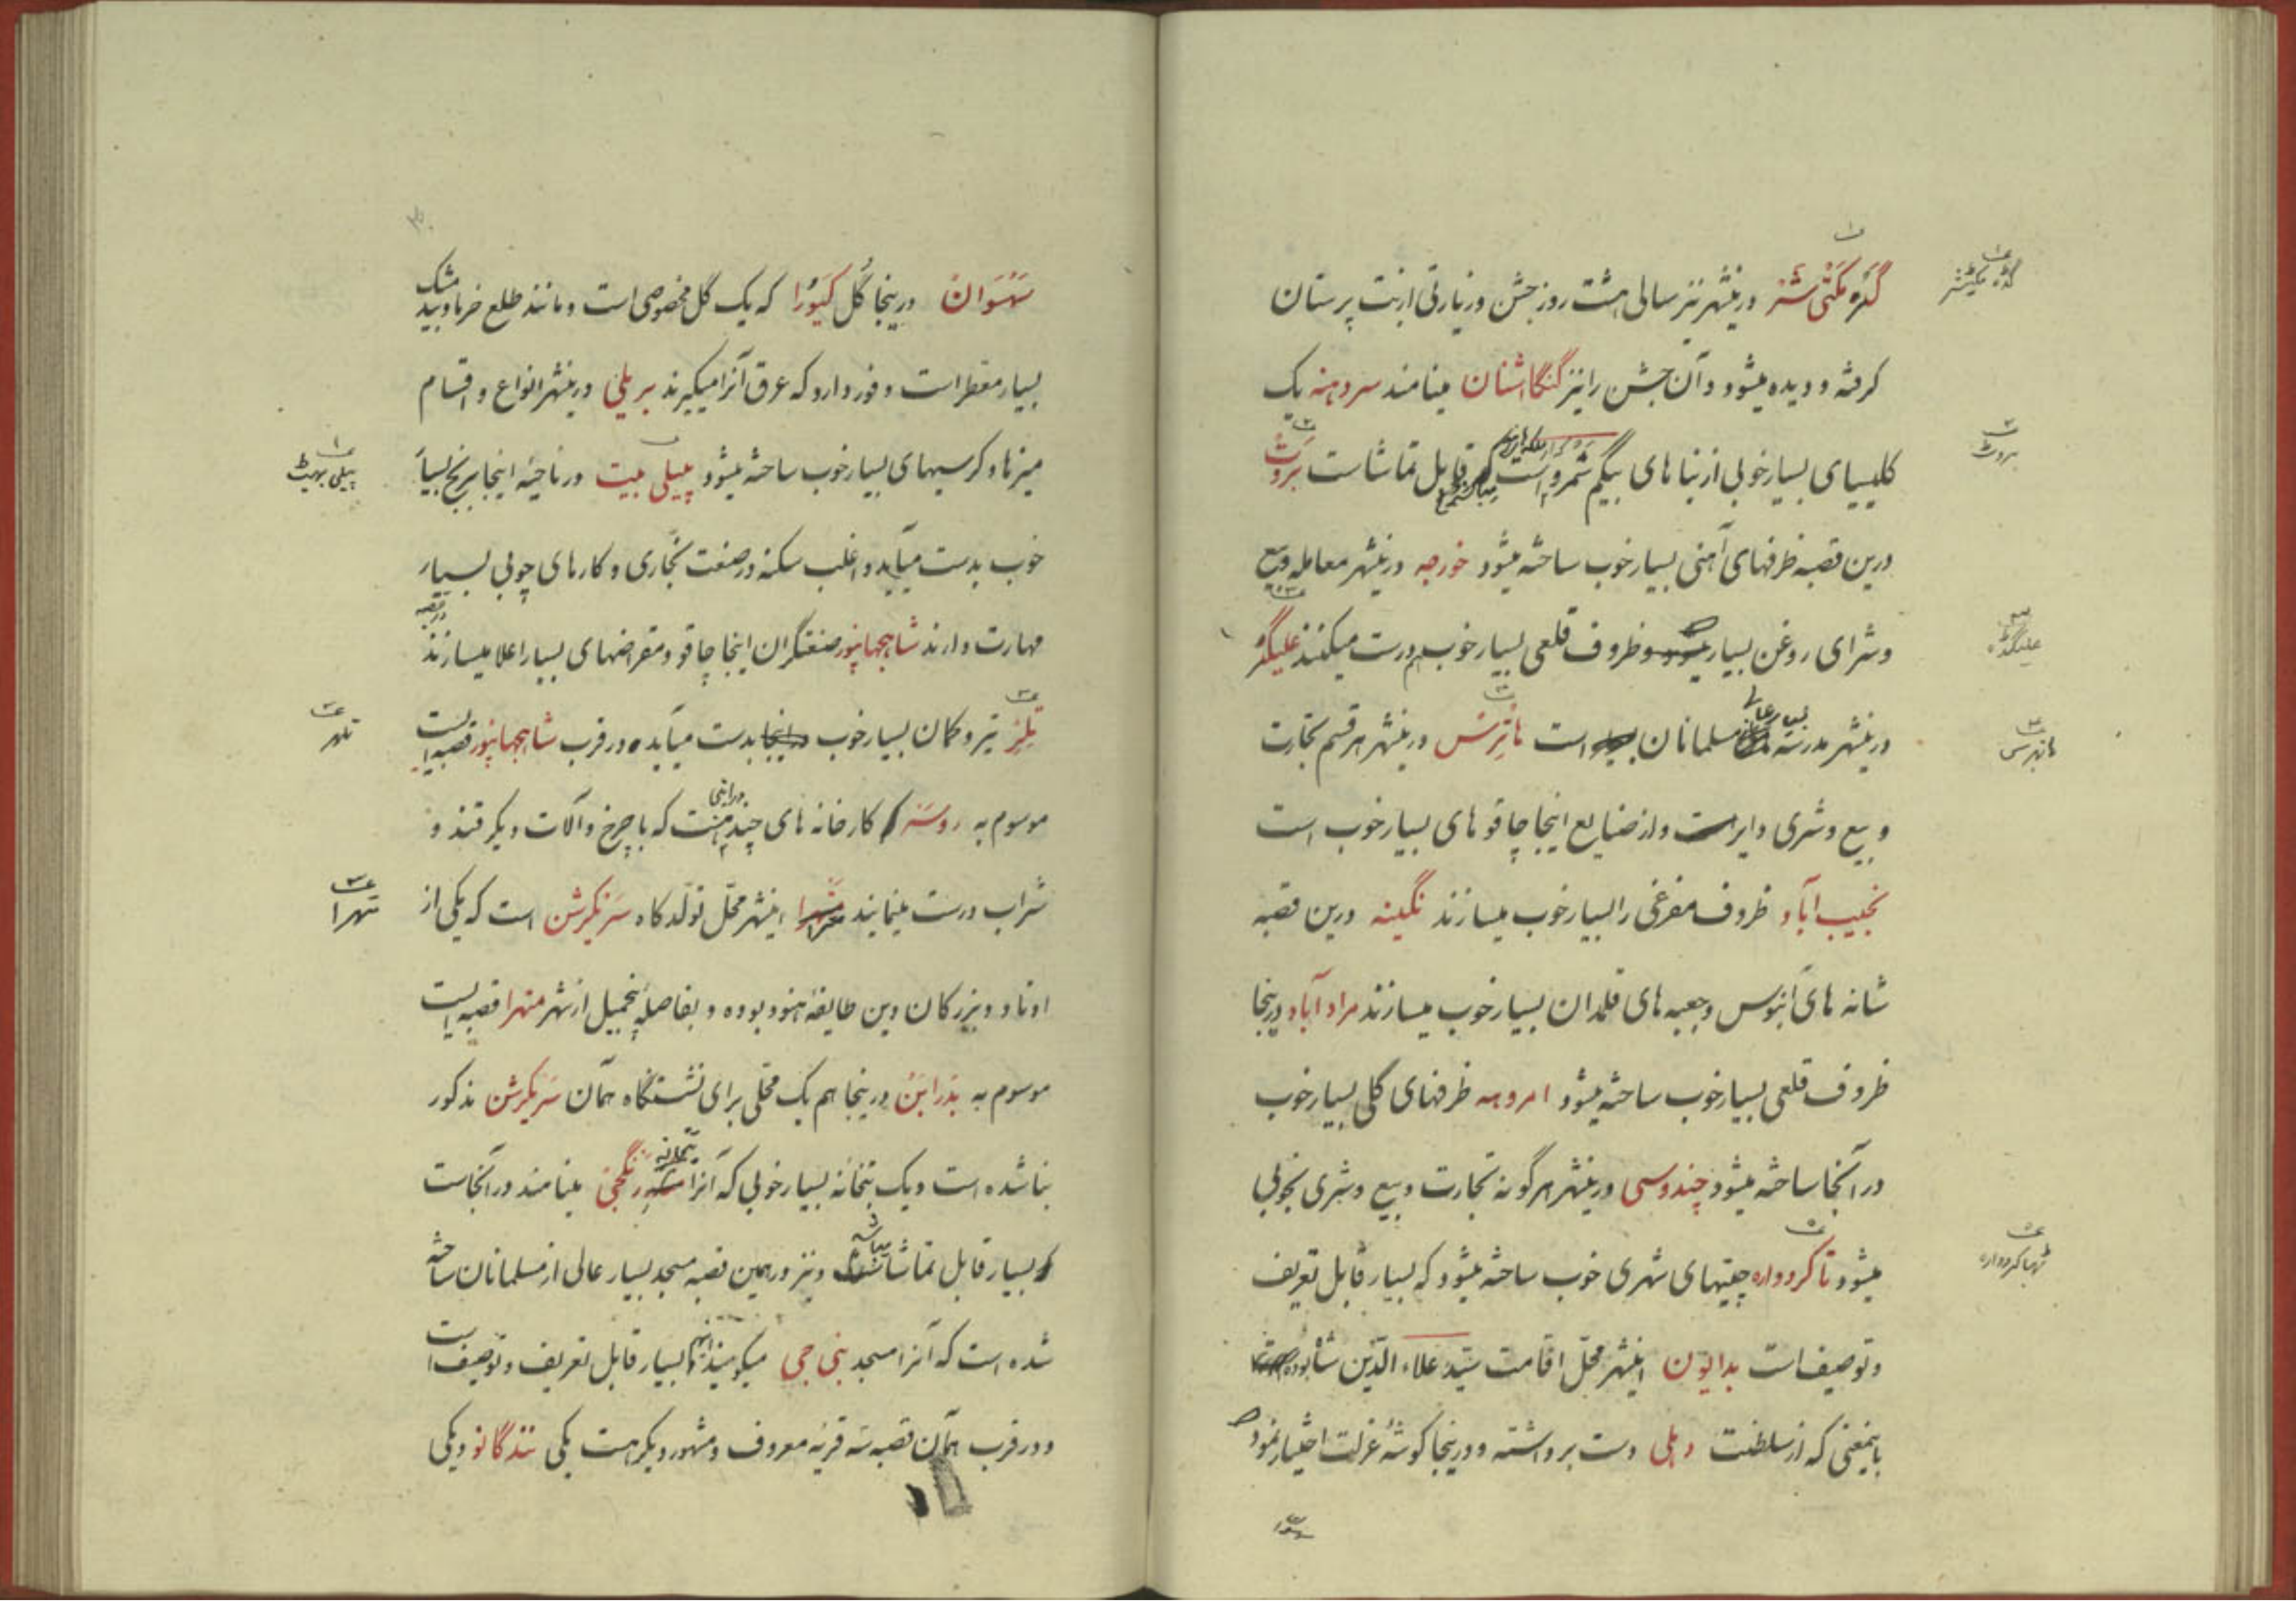 گده مکتی شر درینشهر نیز سالی هشت روز جشن و زیارتی از بت پرستان
گرفته و دیده میشود و آن جشن را نیز گنگا اشنان مینامند سردهنه یک
کلیسیای بسیار خوبی از بناهای بیگم شمرو است قابل تماشاست بروت
درین قصبه ظرفهای آهنی بسیار خوب ساخته میشود خورجه درینشهر معامله و بیع
و شرای روغن بسیار میشود و ظروف قلعی بسیار خوب هم درست میکنند علیگر
درینشهر مدرسه بسیار عالی مسلمانان است هاترس درینشهر هر قسم تجارت
و بیع و شری دایر است و از صنایع اینجا چاقوهای بسیار خوب است
نجیب آباد ظروف مفرغی را بسیار خوب میسازند نگینه درین قصبه
شانه های آبنوس و جعبه های قلمدان بسیار خوب میسازند مراد آباد درینجا
ظروف قلعی بسیار خوب ساخته میشود امروهه ظرفهای گلی بسیار خوب
در آنجا ساخته میشود چندوسی درینشهر هر گونه تجارت و بیع و شری بخوبی
میشود تاکردواره چیتهای شهری خوب ساخته میشود که بسیار قابل تعریف
و توصیف است بدایون اینشهر محل اقامت سید علاء الدین شاه بوده
باینمعنی که از سلطنت دهلی دست برداشته و درینجا گوشهٔ عزلت اختیار نمود
گده مکیشر
بروٹ
علیگڈہ
هاتهرس
ٹهاکردواره
سهسوان
سهسوان درینجا گل کیورا که یک گل مخصوصی است و مانند طلع خرما و بید مشک
بسیار معطر است وفور دارد که عرق آنرا میگیرند بریلی درینشهر انواع و اقسام
میزها و کرسیهای بسیار خوب ساخته میشود پیلی بیت در ناحیهٔ اینجا برنج بسیار
خوب بدست میآید و اغلب سکنه در صنعت نجاری و کارهای چوبی بسیار
مهارت دارند شاهجهانپور صنعتگران اینجا چاقو و مقراضهای بسیار اعلا میسازند در قصبه
تلهر تیر و کمان بسیار خوب در اینجا بدست میآید و در قرب شاهجهانپور قصبه ایست
موسوم به روسر در اینجا کارخانه های چند هست که با چرخ و آلات دیگر قند و
شراب درست مینمایند متهرا اینشهر محل تولد گاه سریکرشن است که یکی از
اوتاد و بزرگان دین طایفهٔ هنود بوده و بفاصلهٔ پنجمیل از شهر متهرا قصبه ایست
موسوم به بندرابن درینجا هم یک محلی برای نشستگاه همان سریکرشن مذکور
بنا شده است و یک بتخانهٔ بسیار خوبی که آنرا بتخانه رنگجی مینامند در آنجاست
و بسیار قابل تماشا میباشد و نیز در همین قصبه مسجد بسیار عالی از مسلمانان ساخته
شده است که آنرا مسجد بنی جی میگویند آنهم بسیار قابل تعریف و توصیف است
و در قرب همان قصبه سه قریهٔ معروف و مشهور دیگر هست یکی نندگانو و یکی
پیلی بهیٹ
تلهر
متهرا